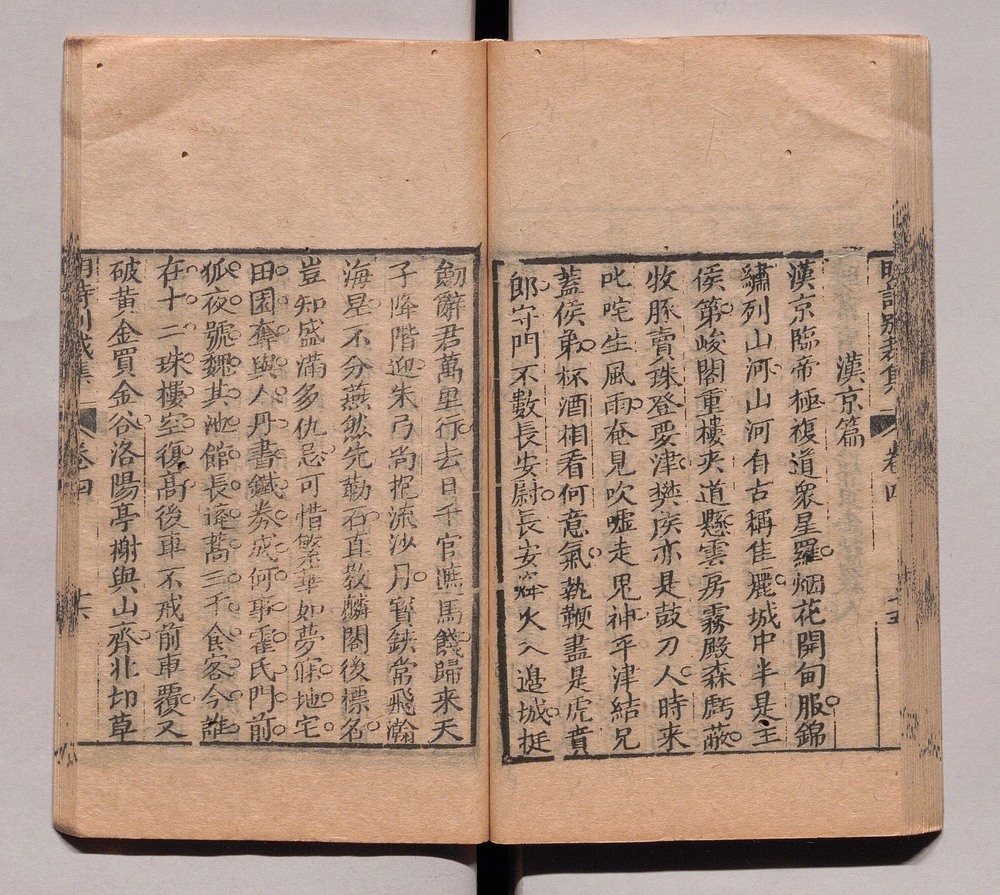 明詩別裁集 卷四 十五
漢京篇
漢京臨帝極複道衆星羅烟花開甸服錦
繡列山河山河自古稱佳麗城中半是王
侯第峻閣重樓夾道懸雲房霧殿森虧蔽
牧豚賣珠登要津樊侯亦是鼓刀人時來
叱咤生風雨奄見吹噓走鬼神平津結兄
蓋侯弟杯酒相看何意氣執鞭盡是虎賁
郎守門不數長安尉長安烽火入邉城挺
劒辭君萬里行去日千官讌馬餞歸來天
子降階迎朱弓尚抱流沙月寶鋏常飛瀚
海星不分燕然先勒石直教麟閣後標名
豈知盛滿多仇忌可惜繁華如夢寐地宅
田園奪與人丹書鐵券成何事霍氏門前
狐夜號魏其池館長蓬蒿三千食客今誰
在十二珠樓空復高後車不戒前車覆又
破黃金買金谷洛陽亭榭與山齊北邙草
明詩別裁集 卷四 十六